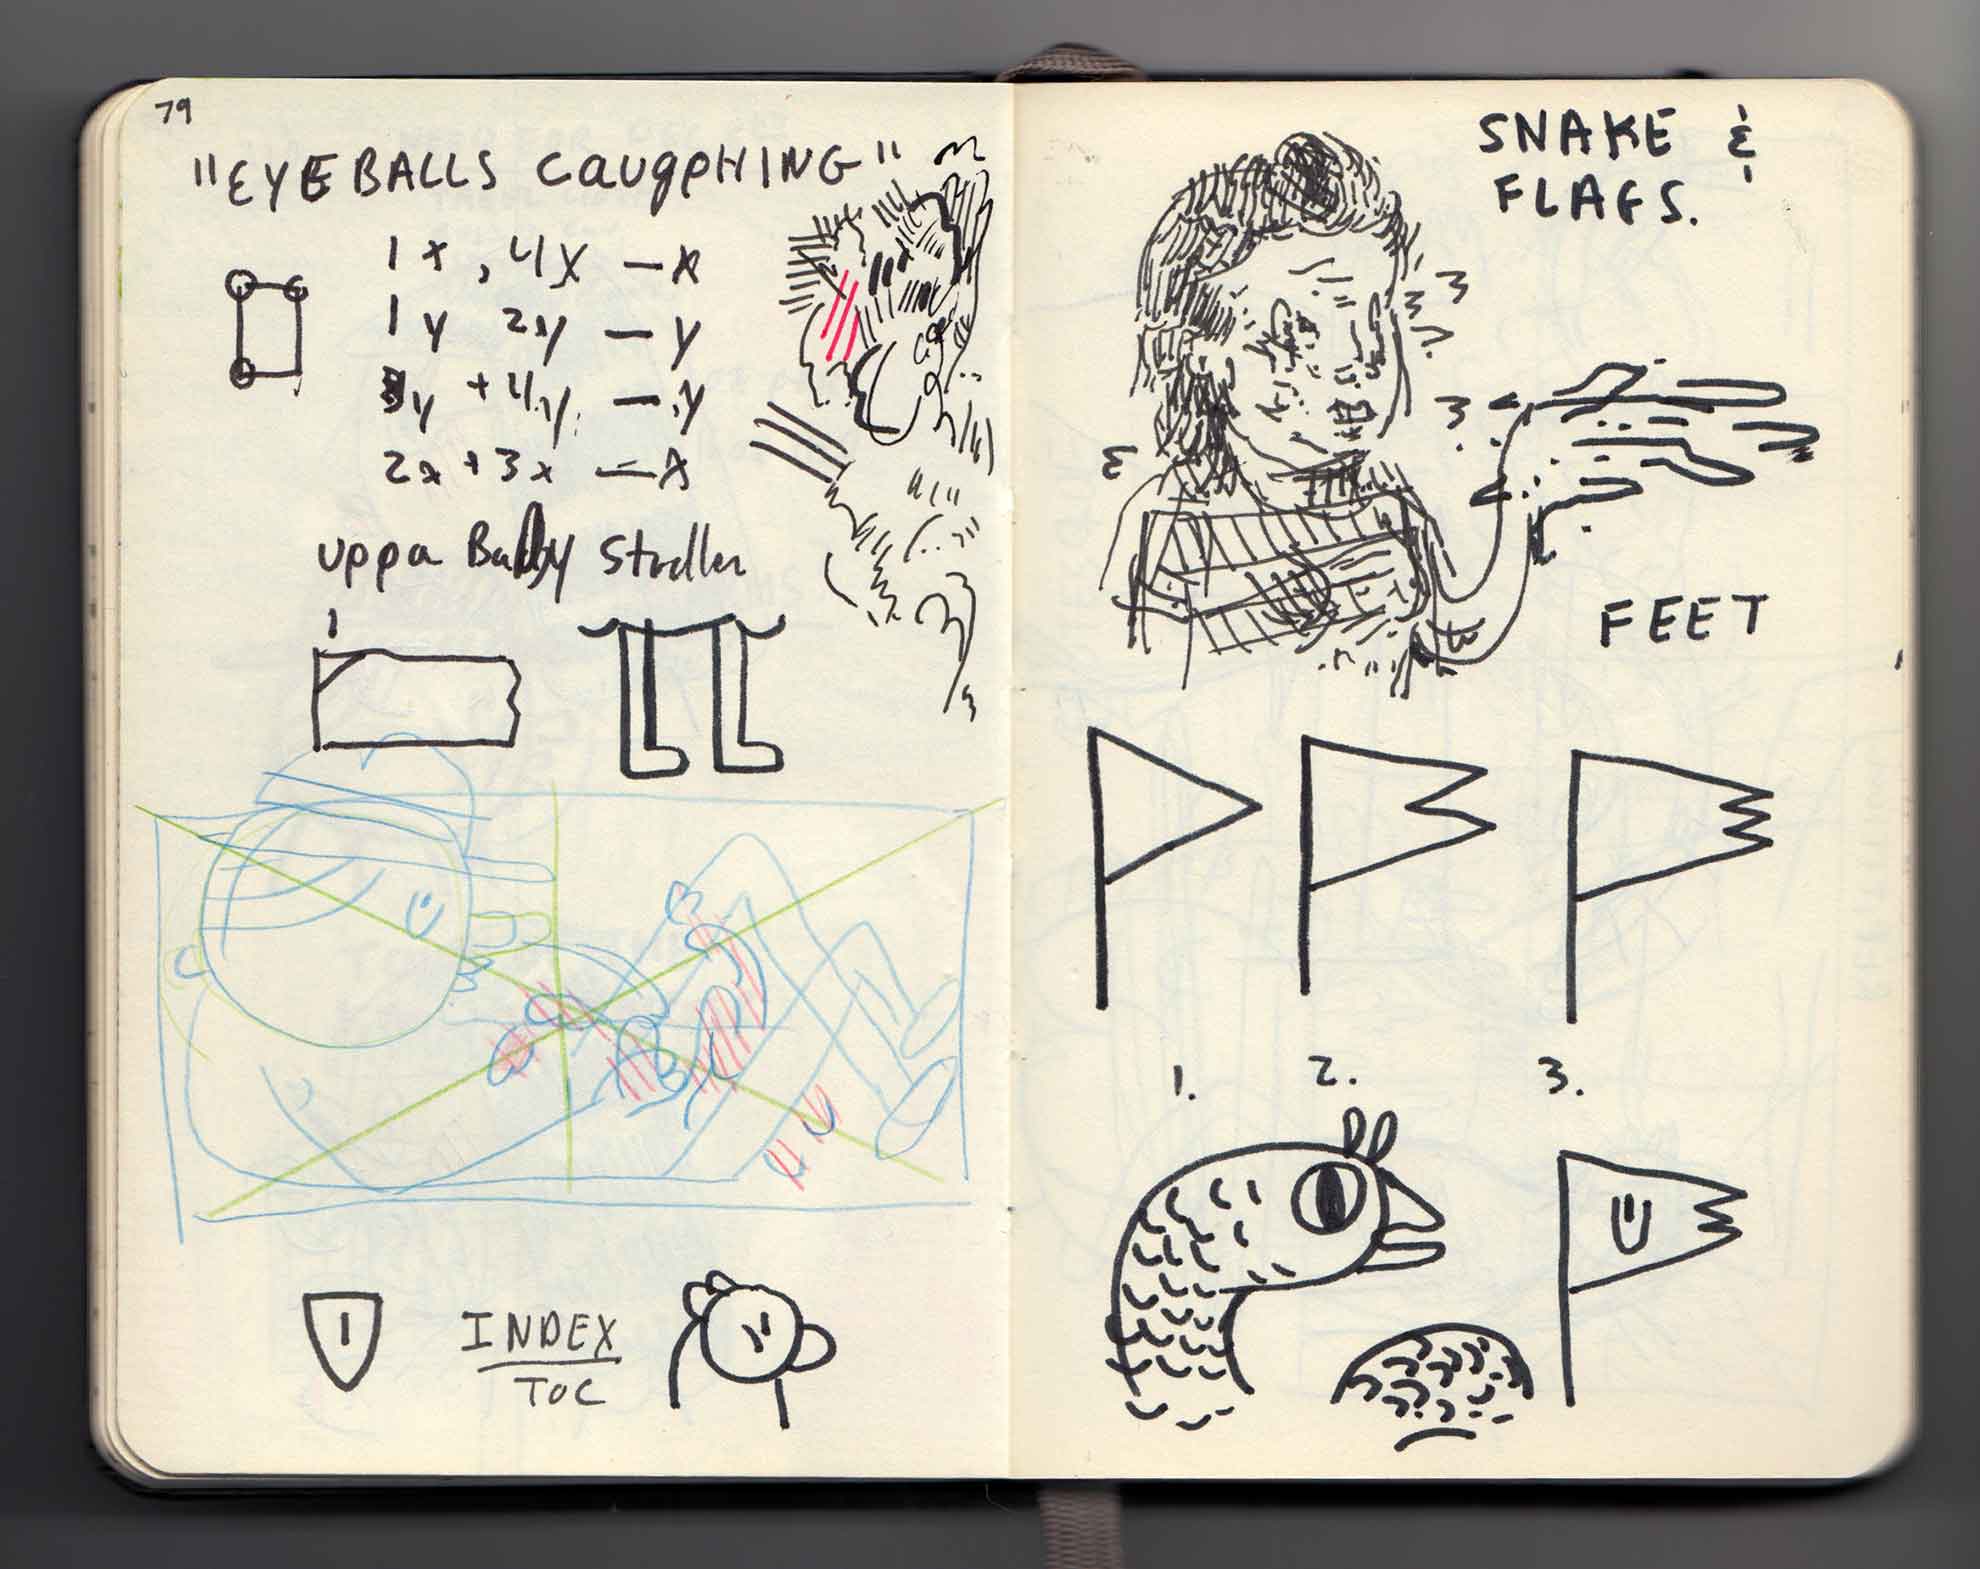 79
"EYEBALLS CaugpHING"
1x, 4x — x
1y 2y — y
3y + 4y. — .y
2x + 3x — x
uppa Baby Stroller
INDEX
TOC
SNAKE &
FLAGS.
FEET
1. 2. 3.